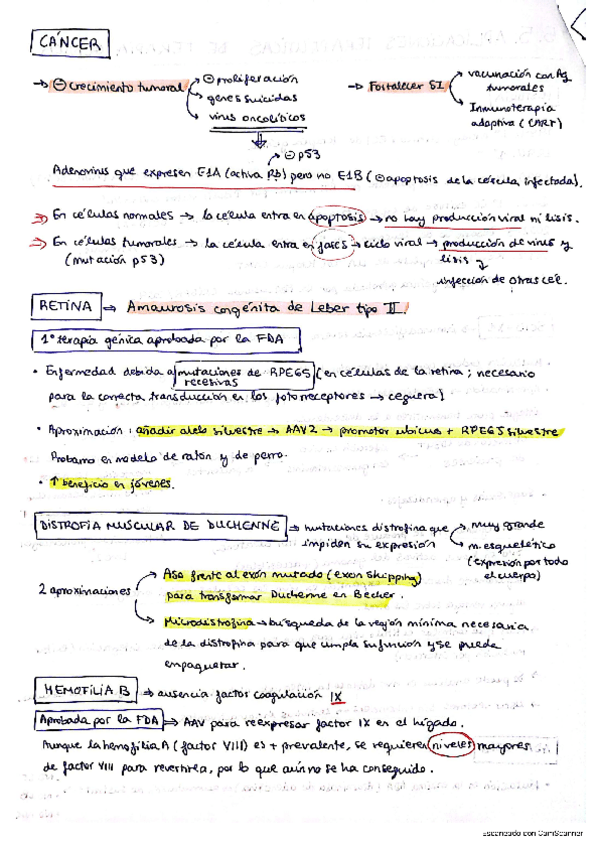 CÁNCER
→ ⊖ Crecimiento tumoral → ⊖ proliferación
→ genes suicidas
→ virus oncolíticos
→ Fortalecer SI → vacunación con Ag tumorales
→ Inmunoterapia adoptiva (CART)
→ ⊖ p53
Adenovirus que expresen E1A (activa Rb) pero no E1B (⊖ apoptosis de la célula infectada).
⇒ En células normales → la célula entra en apoptosis → no hay producción viral ni lisis.
⇒ En células tumorales → la célula entra en fases → ciclo viral → producción de virus y
(mutación p53) lisis
infección de otras cél.
RETINA → Amaurosis congénita de Leber tipo II.
1ª terapia génica aprobada por la FDA
• Enfermedad debida a mutaciones de RPE65 (en células de la retina; necesario
recesivas
para la correcta transducción en los fotoreceptores → ceguera)
• Aproximación: añadir alelo silvestre → AAV2 → promotor ubicuo + RPE65 silvestre
Probaron en modelo de ratón y de perro.
• ↑ beneficio en jóvenes.
DISTROFIA MUSCULAR DE DUCHENNE → mutaciones distrofina que → muy grande
impiden su expresión → m. esquelético
(expresión por todo
el cuerpo)
2 aproximaciones → Aso frente al exón mutado (exon skipping)
para transformar Duchenne en Becker.
→ Microdistrofina → búsqueda de la región mínima necesaria
de la distrofina para que cumpla su función y se pueda
empaquetar.
HEMOFILIA B → ausencia factor coagulación IX
Aprobada por la FDA → AAV para reexpresar factor IX en el hígado.
Aunque la hemofilia A (factor VIII) es + prevalente, se requieren niveles mayores
de factor VIII para revertirla, por lo que aún no se ha conseguido.
Escaneado con CamScanner